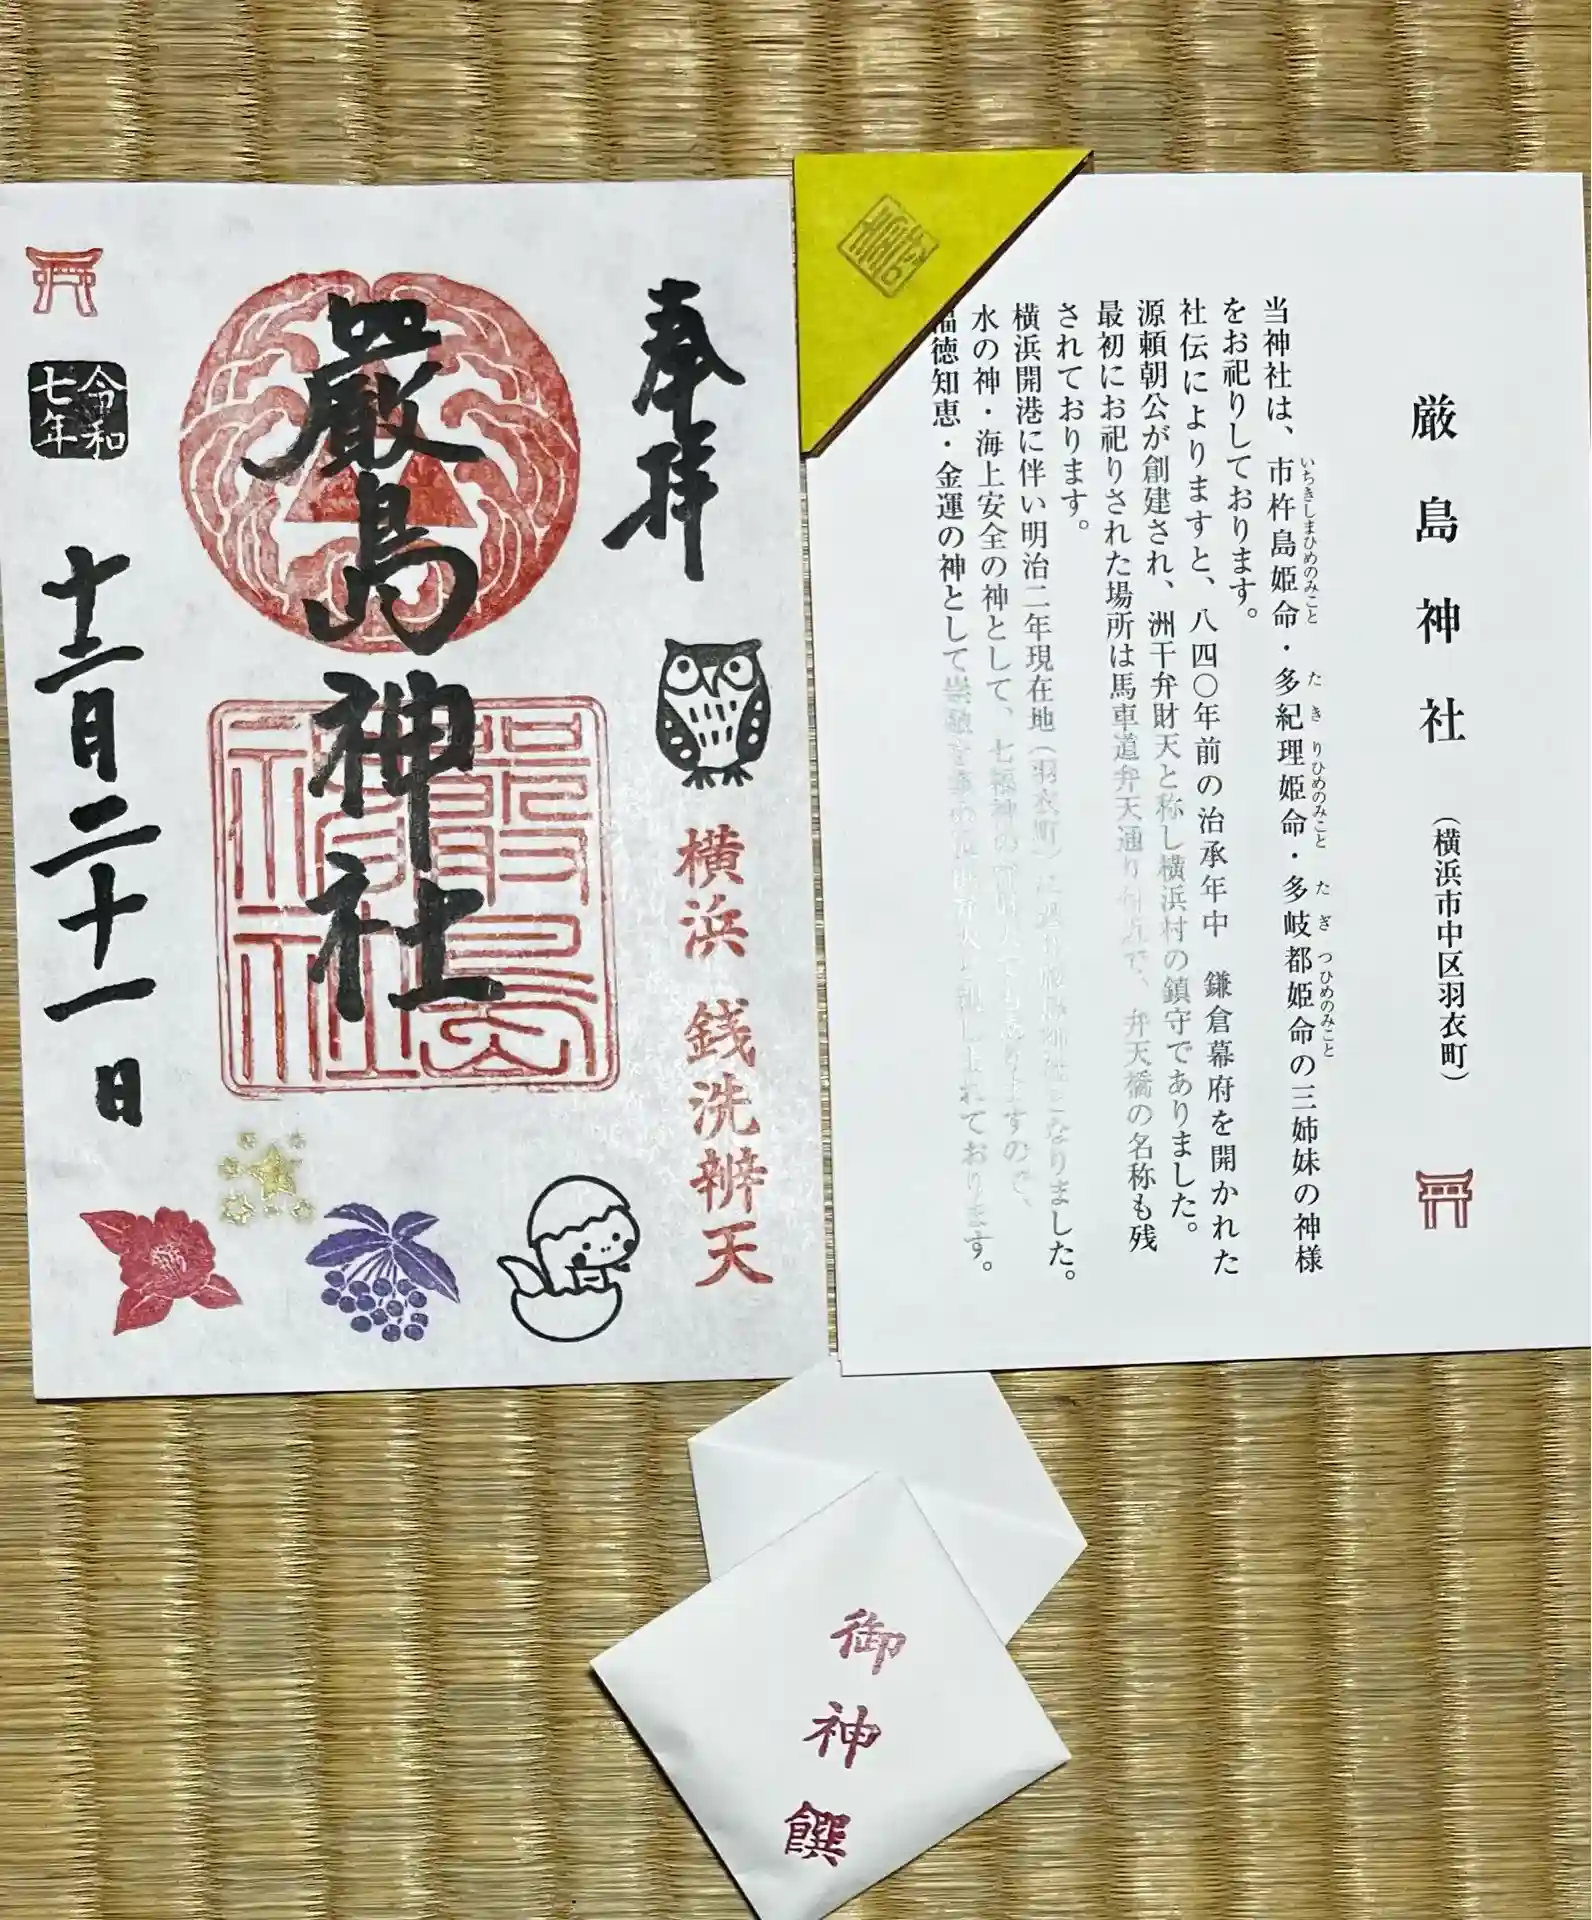 厳島神社 (横浜市中区羽衣町)
当神社は、市杵島姫命・多紀理姫命・多岐都姫命の三姉妹の神様
いちきしまひめのみこと
たきりひめのみこと
たぎつひめのみこと
をお祀りしております。
社伝によりますと、八四〇年前の治承年中 鎌倉幕府を開かれた
源頼朝公が創建され、洲干弁財天と称し横浜村の鎮守でありました。
最初にお祀りされた場所は馬車道弁天通り付近で、弁天橋の名称も残
されております。
横浜開港に伴い明治二年現在地(羽衣町)に
なりました。
水の神・海上安全の神として、七福神の
ますので、
福徳知恵・金運の神として崇敬
されております。
奉拝
横浜 銭洗辨天
嚴島神社
嚴島神社
令和七年
十二月二十一日
御神饌